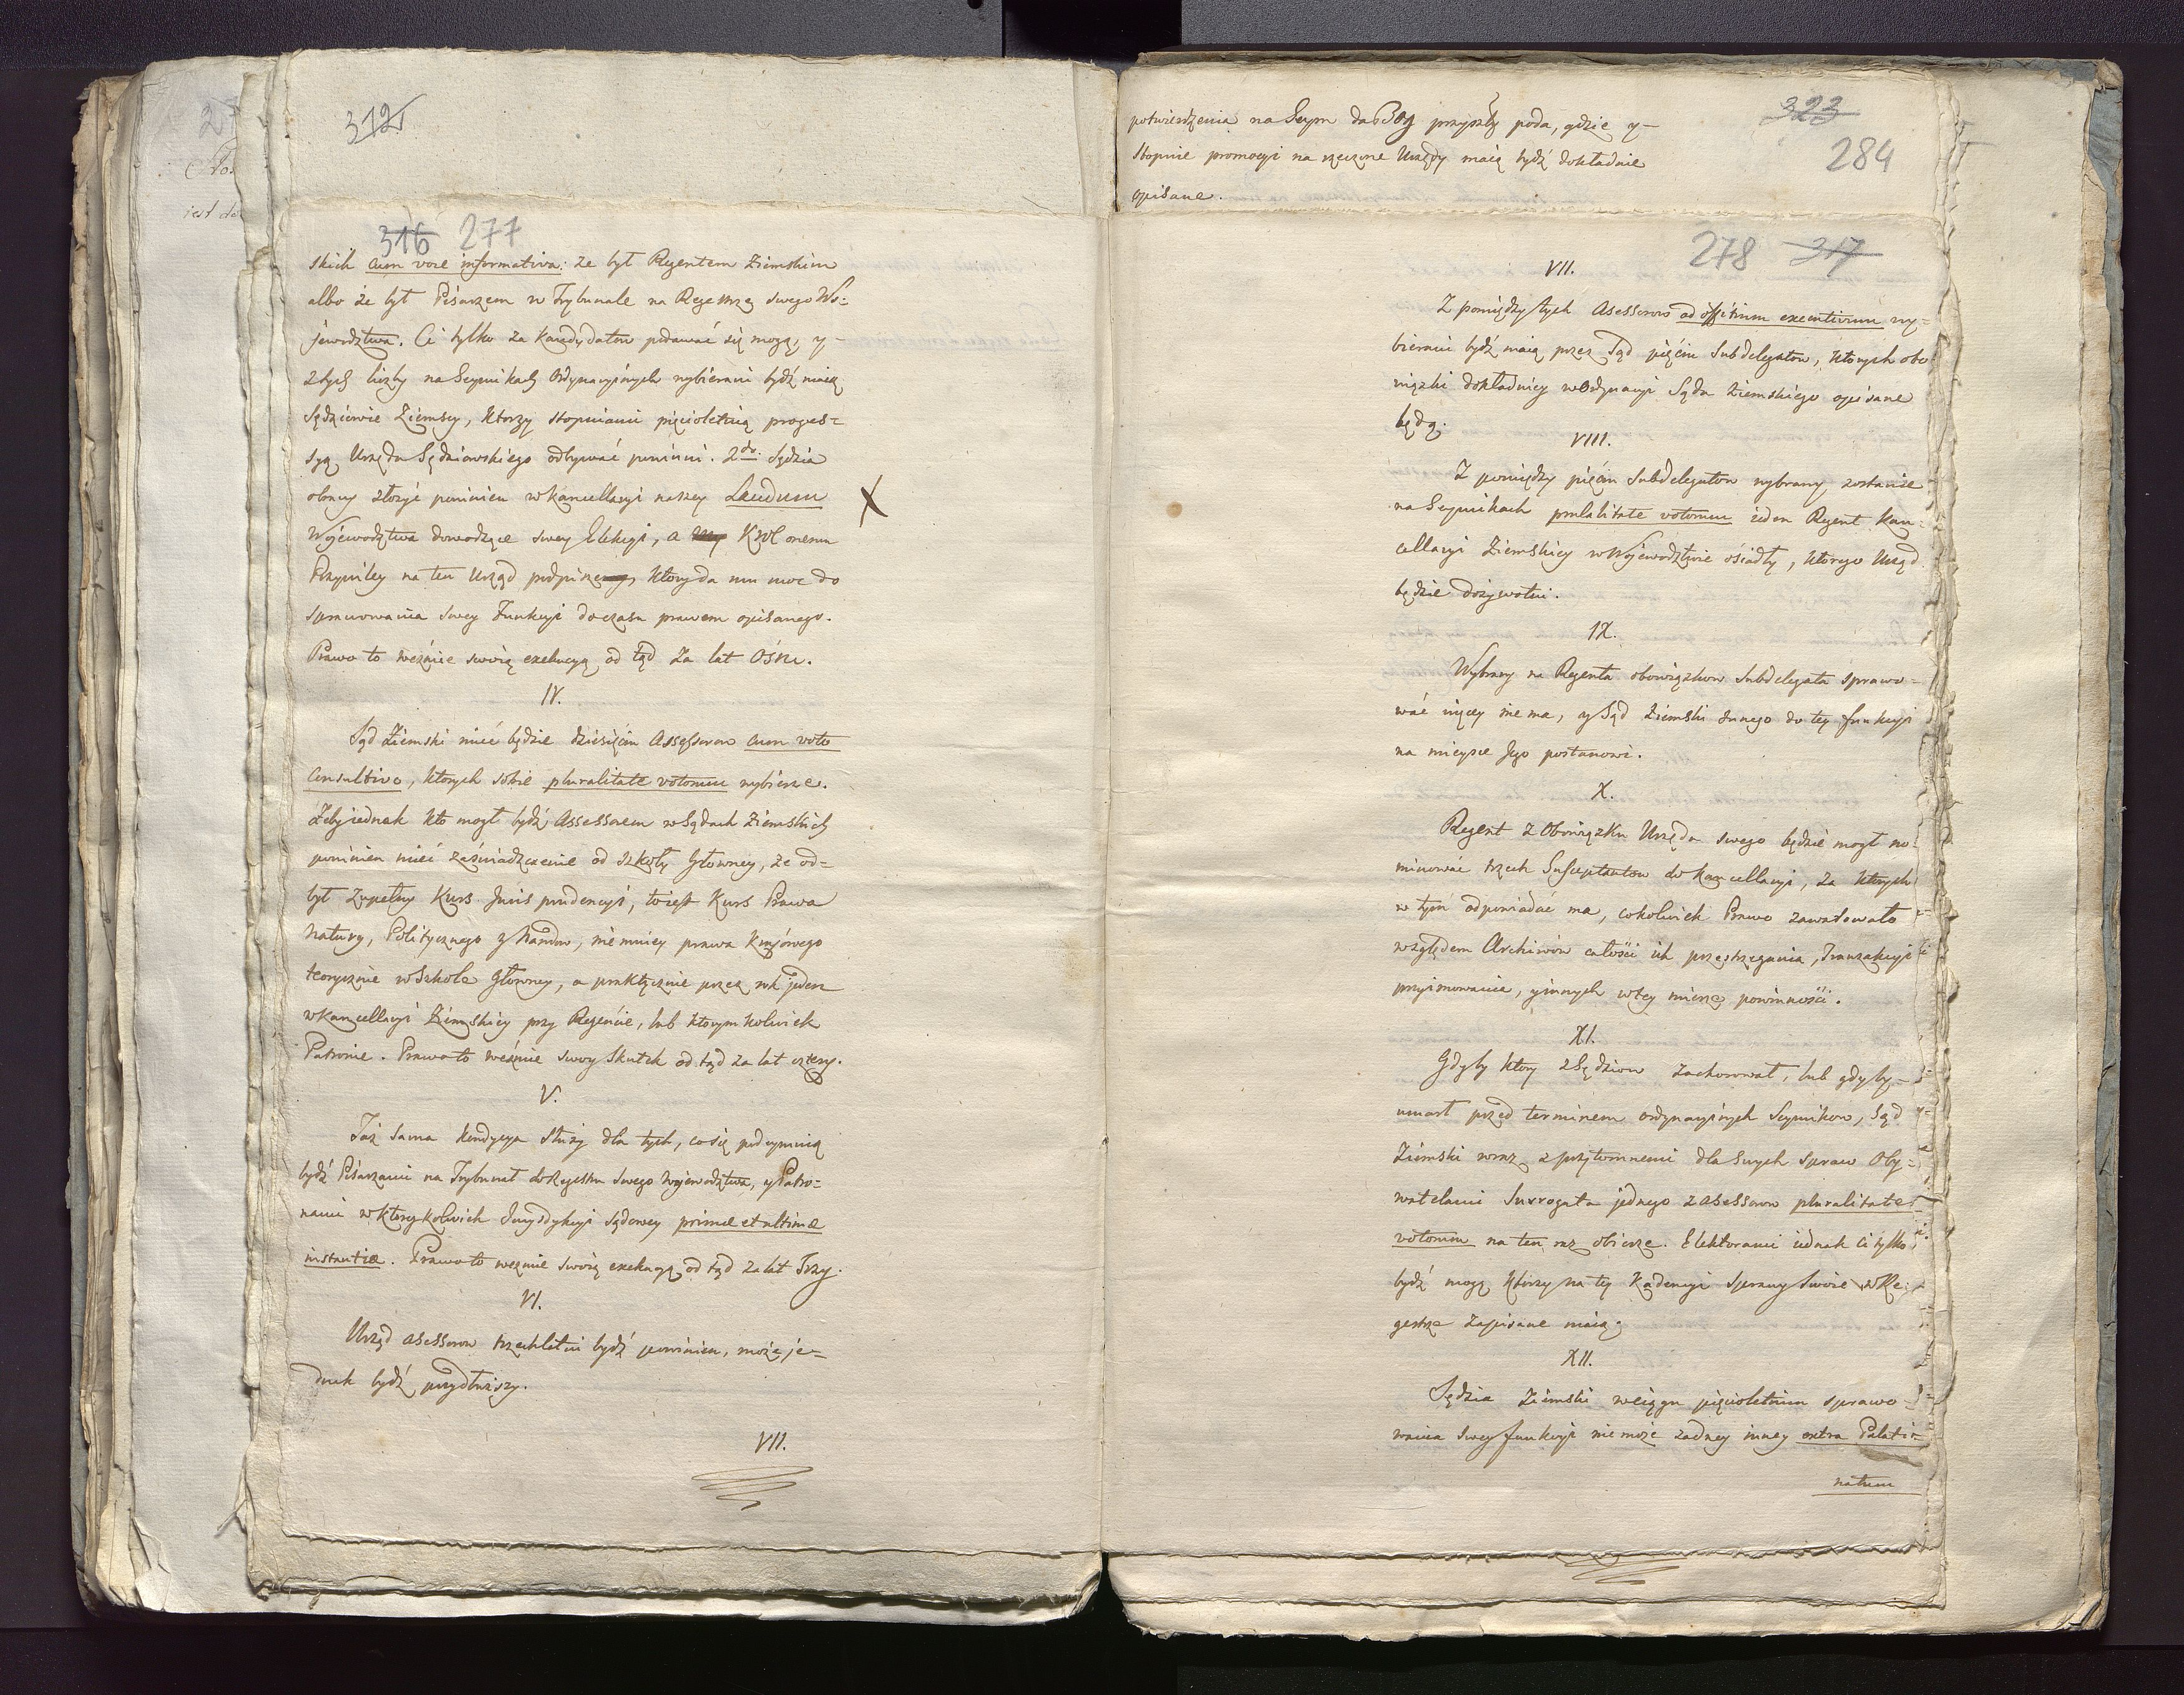 312
316 277
skich cum voce informativa: że był Regentem Ziemskim
albo że był Pisarzem w Trybunale na Regestrze swego Wo=
jewodztwa. Ci tylko za Kandydatow podawać się mogą, y
z tych liczby na Seymikach Ordynaryinych wybierani bydź maią
Sędziowie Ziemscy, ktorzy stopniami pięcioletnią progres=
syą Urzędu Sędziowskiego odbywać powinni. 2do. Sędzia
obrany złożyć powinien w Kancellaryi naszey Laudum
Wojewodztwa dowodzące swey Elekcyi, a Krol onemu
Przywiley na ten Urząd podpisze, ktory da mu moc do
sprawowania swey Funkcyi do czasu prawem opisanego.
Prawo to weźmie swoią exekucyą od tąd za lat Ośm.
IV.
Sąd Ziemski mieć będzie dziesięciu Assessorow cum voto
consultivo, ktorych sobie pluralitate votorum wybierze.
Żeby iednak kto mogł bydź Assessorem w Sądach Ziemskich
powinien mieć zaświadczenie od szkoły Głowney, że od=
był zupełny Kurs Juris prudencyi, to iest Kurs Prawa
Natury, Politycznego y Narodow, niemniey prawa Krajowego
teorycznie w Szkole Głowney, a praktycznie przez rok jeden
w Kancellaryi Ziemskiey przy Regencie, lub ktorymkolwiek
Patronie. Prawo to weźmie swoy Skutek od tąd za lat cztery.
V.
Taż sama kondycya służy dla tych, co się podeymuią
bydź Pisarzami na Trybunał do Regestru swego Wojewodztwa, y Patro=
nami w ktoreykolwiek Jurysdykcyi sądowey primæ et ultimæ
instantiæ. Prawo to weźmie swoią exekucyą od tąd za lat Trzy.
VI.
Urząd asessorow trzechletni bydź powinien, może je=
dnak bydź przydłuższy.
VII.
potwierdzenia na Seym da Bog przyszły poda, gdzie y
stopnie promocyi na rzeczone Urzędy maią bydź dokładnie
opisane.
323
284
278 317
VII.
Z pomiędzy tych Asessorow ad officium executivum wy=
bierani bydź maią przez Sąd pięciu Subdelegatow, ktorych obo
wiązki dokładniey w Ordynacyi Sądu Ziemskiego opisane
będą.
VIII.
Z pomiędzy pięciu Subdelegatow wybrany zostanie
na Seymikach pluralitate votorum ieden Regent Kan=
cellaryi Ziemskiey w Wojewodztwie osiadły, ktorego Urząd
będzie dożywotni.
IX.
Wybrany na Regenta obowiązkow Subdelegata sprawo=
wać więcey nie ma, y Sąd Ziemski innego do tey funkcyi
na mieysce Jego postanowi.
X.
Regent z Obowiązku Urzędu swego będzie mogł no=
minować trzech Susceptantow do Kancellaryi, za ktorych
w tym odpowiadać ma, cokolwiek Prawo zawarowało
względem Archiwow całości ich przestrzegania, Tranzakcyi
przyimowania, y innych w tey mierze powinności.
XI.
Gdyby ktory z Sędziow zachorował, lub gdyby
umarł przed terminem ordynaryinych Seymikow, Sąd
Ziemski wraz z przytomnemi dla swych spraw Oby=
watelami Surrogata jednego z asessorow pluralitate
votorum na ten raz obierze. Elektorami iednak ci tylko
bydź mogą ktorzy na tey Kadencyi sprawy swoie w Re=
gestrze zapisane maią.
XII.
Sędzia Ziemski w ciągu pięcioletnim sprawo=
wania swey funkcyi nie może żadney inney extra Palati=
natum